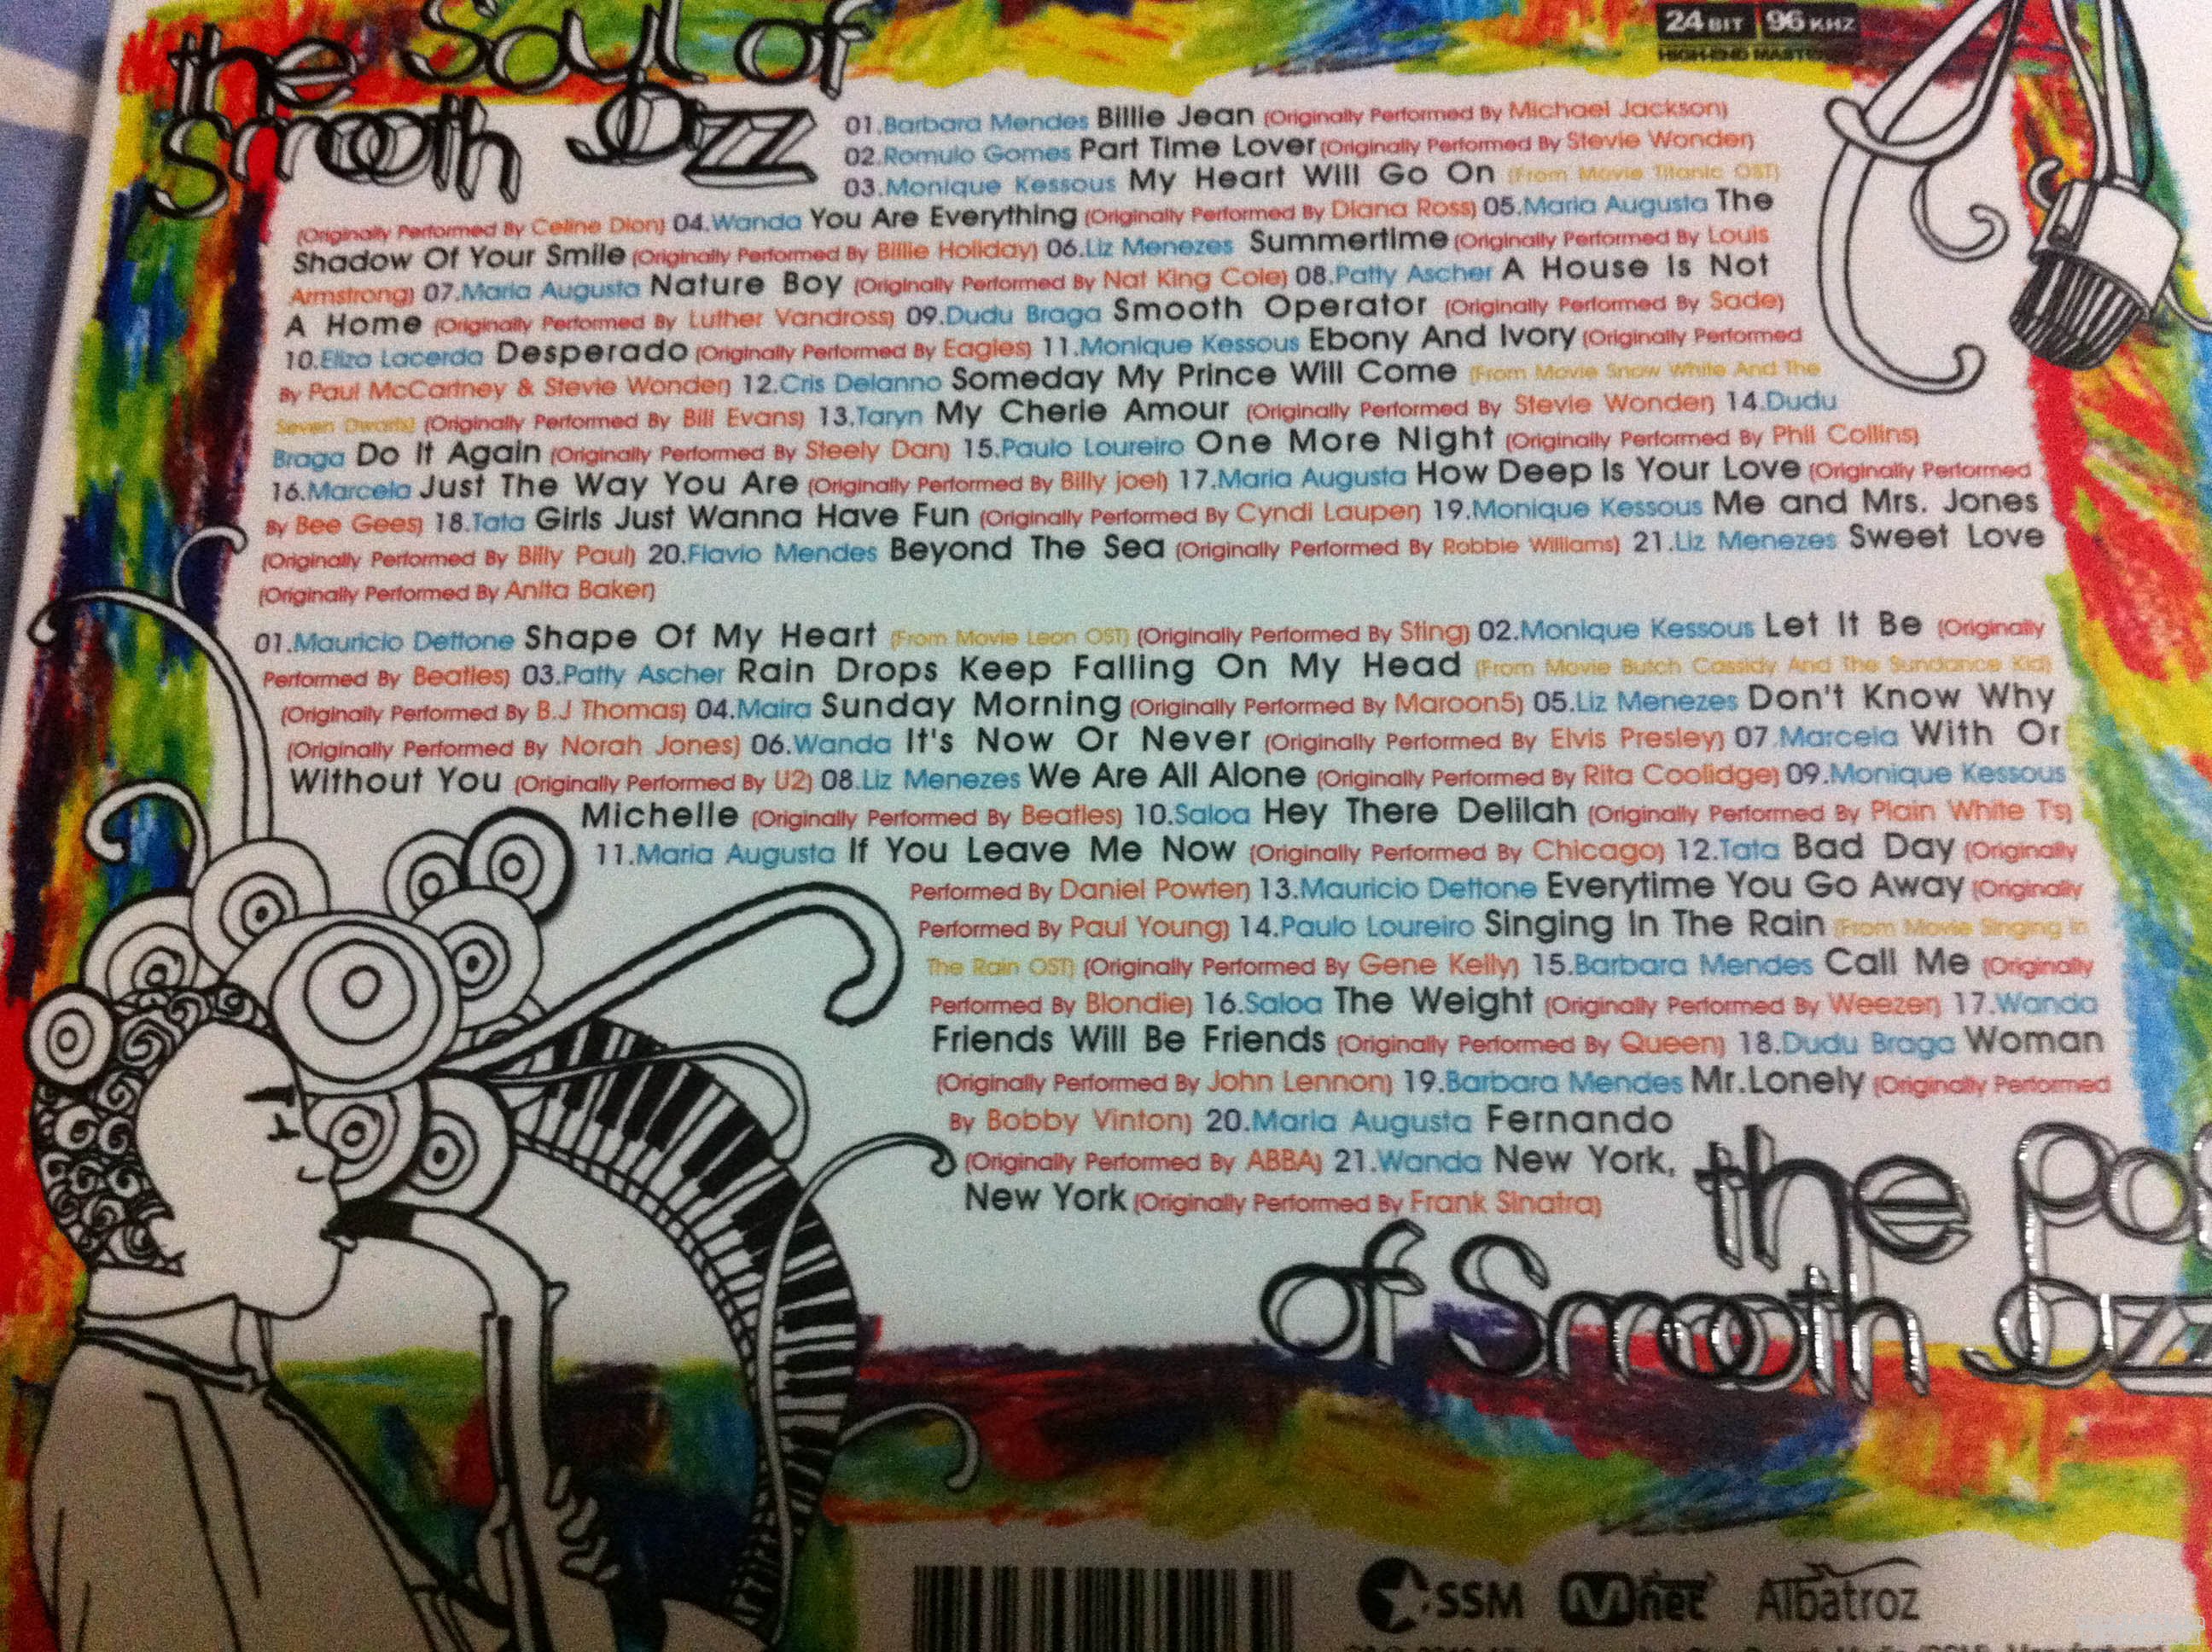 the Soul of
Smooth Jazz
24 BIT 96 KHZ
HIGH-END
01.Barbara Mendes Billie Jean (Originally Performed By Michael Jackson)
02.Romulo Gomes Part Time Lover (Originally Performed By Stevie Wonder)
03.Monique Kessous My Heart Will Go On (From Movie Titanic OST)
(Originally Performed By Celine Dion) 04.Wanda You Are Everything (Originally Performed By Diana Ross) 05.Maria Augusta The
Shadow Of Your Smile (Originally Performed By Billie Holiday) 06.Liz Menezes Summertime (Originally Performed By Louis
Armstrong) 07.Maria Augusta Nature Boy (Originally Performed By Nat King Cole) 08.Patty Ascher A House Is Not
A Home (Originally Performed By Luther Vandross) 09.Dudu Braga Smooth Operator (Originally Performed By Sade)
10.Eliza Lacerda Desperado (Originally Performed By Eagles) 11.Monique Kessous Ebony And Ivory (Originally Performed
By Paul McCartney & Stevie Wonder) 12.Cris Delanno Someday My Prince Will Come (From Movie Snow White And The
Seven Dwarfs) (Originally Performed By Bill Evans) 13.Taryn My Cherie Amour (Originally Performed By Stevie Wonder) 14.Dudu
Braga Do It Again (Originally Performed By Steely Dan) 15.Paulo Loureiro One More Night (Originally Performed By Phil Collins)
16.Marcela Just The Way You Are (Originally Performed By Billy joel) 17.Maria Augusta How Deep Is Your Love (Originally Performed
By Bee Gees) 18.Tata Girls Just Wanna Have Fun (Originally Performed By Cyndi Lauper) 19.Monique Kessous Me and Mrs. Jones
(Originally Performed By Billy Paul) 20.Flavio Mendes Beyond The Sea (Originally Performed By Robbie Williams) 21.Liz Menezes Sweet Love
(Originally Performed By Anita Baker)
01.Mauricio Dettone Shape Of My Heart (From Movie Leon OST) (Originally Performed By Sting) 02.Monique Kessous Let It Be (Originally
Performed By Beatles) 03.Patty Ascher Rain Drops Keep Falling On My Head (From Movie Butch Cassidy And The Sundance Kid)
(Originally Performed By B.J Thomas) 04.Maira Sunday Morning (Originally Performed By Maroon5) 05.Liz Menezes Don't Know Why
(Originally Performed By Norah Jones) 06.Wanda It's Now Or Never (Originally Performed By Elvis Presley) 07.Marcela With Or
Without You (Originally Performed By U2) 08.Liz Menezes We Are All Alone (Originally Performed By Rita Coolidge) 09.Monique Kessous
Michelle (Originally Performed By Beatles) 10.Saloa Hey There Delilah (Originally Performed By Plain White T's)
11.Maria Augusta If You Leave Me Now (Originally Performed By Chicago) 12.Tata Bad Day (Originally
Performed By Daniel Powter) 13.Mauricio Dettone Everytime You Go Away (Originally
Performed By Paul Young) 14.Paulo Loureiro Singing In The Rain (From Movie Singing In
The Rain OST) (Originally Performed By Gene Kelly) 15.Barbara Mendes Call Me (Originally
Performed By Blondie) 16.Saloa The Weight (Originally Performed By Weezer) 17.Wanda
Friends Will Be Friends (Originally Performed By Queen) 18.Dudu Braga Woman
(Originally Performed By John Lennon) 19.Barbara Mendes Mr.Lonely (Originally Performed
By Bobby Vinton) 20.Maria Augusta Fernando
(Originally Performed By ABBA) 21.Wanda New York,
New York (Originally Performed By Frank Sinatra)
the
of Smooth Jazz
SSM Mnet Albatroz